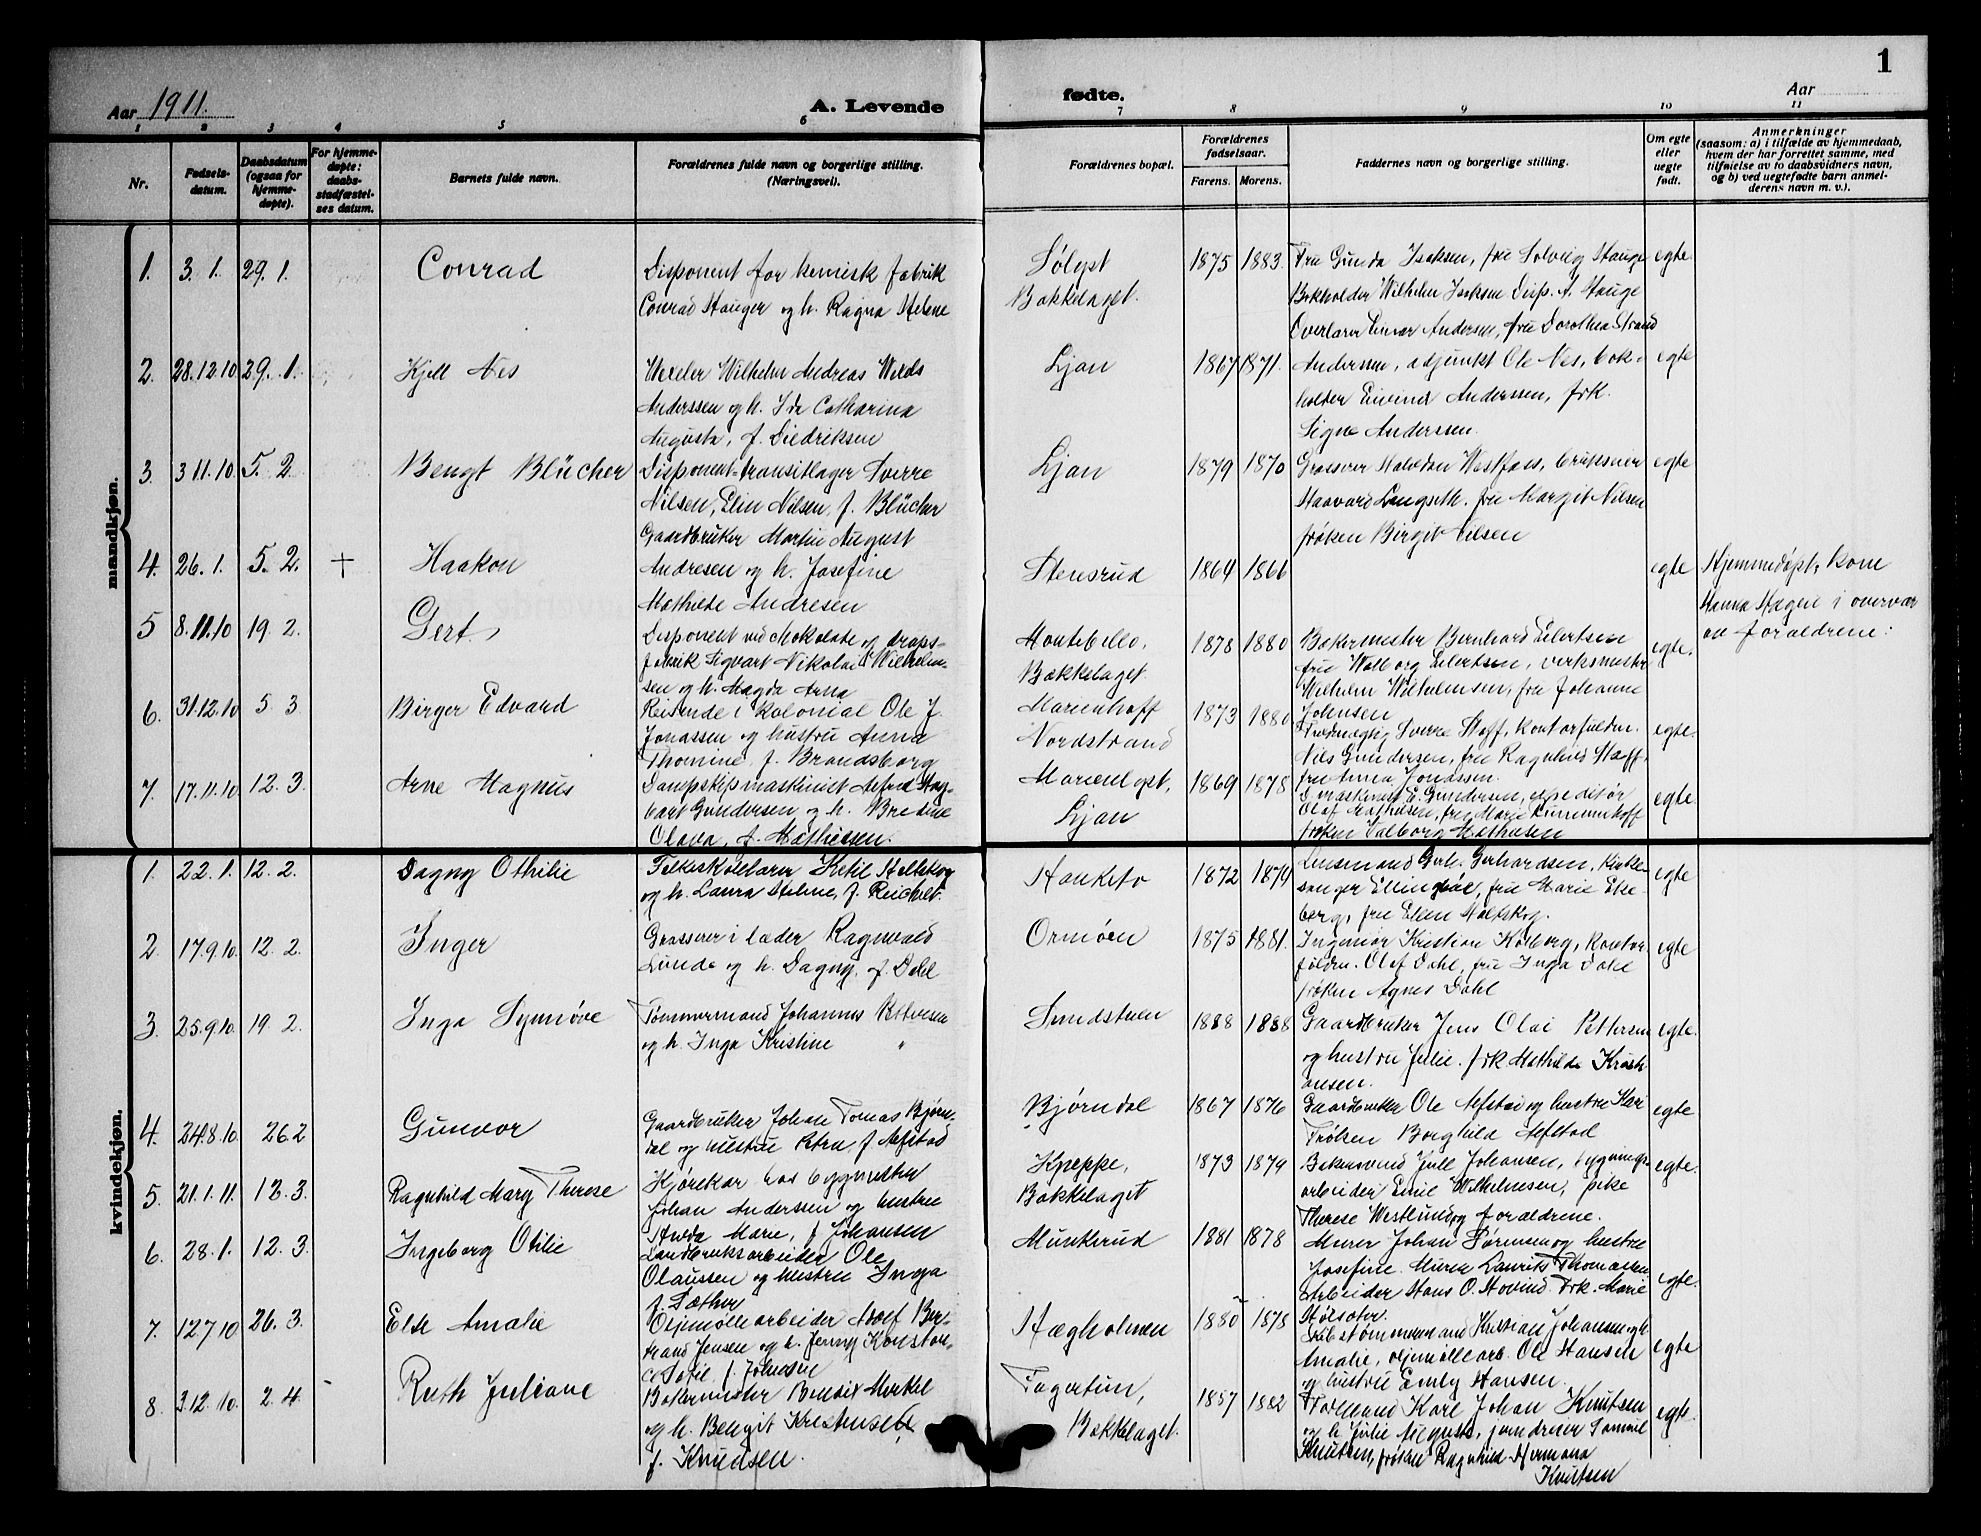 1
Aar 1911.
A. Levende
fødte.
Aar
1 2 3 4 5 6
7 8 9 10 11
Nr.
Fødsels-
datum.
Daabsdatum
(ogsaa for
hjemme-
døpte).
For hjemme-
døpte:
daabs-
stadfæstel-
ses datum.
Barnets fulde navn.
Forældrenes fulde navn og borgerlige stilling.
(Næringsvei).
Forældrenes bopæl.
Forældrenes
fødselsaar.
Farens. Morens.
Faddernes navn og borgerlige stilling.
Om egte
eller
uegte
født.
Anmerkninger
(saasom: a) i tilfælde av hjemmedaab,
hvem der har forrettet samme, med
tilføielse av to daabsvidners navn,
og b) ved uegtefødte barn anmel-
derens navn m. v.).
mandkjøn.
1. 3. 1. 29. 1. Conrad
Disponent for kemisk fabrik
Conrad Hauger og h. Ragna Helene
Sølyst
Bækkelaget.
1875 1883.
Fru Gunda Isaksen, fru Solveig Hauge
Bokholder Wilhelm Isaksen Disp. A. Hauge
egte
2. 28.12.10 29. 1. Kjell Nes
Wilhelm Andreas
Anderssen og h. Ida Catharina
Augusta, f. Diedriksen
Ljan
1867 1871.
Overlærer Einar Andersen, fru Dorothea Strand
Anderssen, adjunkt Ole Nes, bok-
holder Eivind Anderssen, frk.
Signe Anderssen.
egte
3. 3 11.10 5. 2. Bengt Blücher
Disponent-transitlager Sverre
Nilsen, Elin Nilsen, f. Blücher
Ljan
1879 1870
Haavard Langseth. fru Margit Nilsen
frøken Birgit Nilsen
egte
4. 26. 1. 5. 2. + Haakon
Gaardbruker Martin August
Andresen og h. Josefine
Mathilde Andresen
Stensrud
1864 1866
egte
Hjemmedøpt, kone
Hanna Hagen i overvær
av forældrene.
5 8.11.10 19 2. Gert
Disponent ved chokolate og drops-
fabrik Sigvart Nikolai Wilhelm-
sen og h. Magda Anna
Montebello,
Bækkelaget
1878 1880
Bakermester Bernhard Eilertsen
fru Walborg Eilertsen, verksmester
Wilhelm Wilhelmsen, fru Johanne
Johnsen
egte.
6. 31.12.10 5 3 Birger Edvard
Reisende i kolonial Ole J.
Jonassen og hustru Anna
Thomine, f. Brandsborg
Marienhoff
Nordstrand
1873 1880.
Sverre Hoff, kontorfuldm.
Nils Gundersen, fru Ragnhild Hoff,
fru Anna Jonassen.
egte.
7. 17.11.10 12. 3. Arne Magnus
Dampskipsmaskinist Alfred Hag-
bart Gundersen og h. Bredine
Olava, f. Mathiesen.
Marienlyst,
Ljan
1869 1878
maskinist E. Gundersen, expeditør
Olaf Mathiesen, fru Marie
frøken Valborg Mathiesen
egte.
kvindekjøn.
1. 22. 1. 12. 2. Dagny Othilie
Folkeskolelærer Ketil Holtskog
og h. Laura Helene, f. Reichelt.
Hauketo
1872 1874
Lensmand Gerh. Gerhardsen, kirke-
sanger Ellingbøe, fru Marie Eke-
berg, fru Ellen Holtskog.
egte
2. 17.9.10. 12. 2 Inger
Grosserer i læder Ragnvald
Lunde og h. Dagny, f. Dahl
Ormøen
1875 1881.
Ingeniør Kristian Kolborg, kontor
fuldm. Olaf Dahl, fru Inga Dahl
frøken Agnes Dahl
egte
3. 25.9.10. 19. 2. Inga Synnøve
Tømmermand Johannes Pettersen
og h. Inga Kristine "
Sundstuen
1888 1888
Gaardbruker Jens Olai Pettersen
og hustru Julie. frk Mathilde Krist-
ansen.
egte.
4. 24.8.10. 26.2 Gunvor
Gaardbruker Johan Tomas Bjørn-
dal og hustru Petra f. Afstad
Bjørndal
1867 1876
Gaardbruker Ole Afstad og hustru Kari
Frøken Borghild Afstad
egte
5. 21.1.11. 12.3. Ragnhild Mary Therese
Kjørekar hos bygmester
Johan Anderssen og hustru
Marie, f. Johansen
Kneppe,
Bækkelaget
1873 1879
Jull Johansen, bygnings-
arbeider Emil Wilhelmsen, pike
Therese Westlund og forældrene.
egte.
6. 28.1. 12.3. Ingeborg Otilie
Landbruksarbeider Ole
Olaussen og hustru Inga
f. Sæther
Munkerud
1881 1878
Murer Johan Sørensen og hustru
Josefine. Murer Laurits Thomassen
Arbeider Hans O. Hovind. Frk. Marie
Hølsæter.
egte.
7. 12 7 10 26. 3. Else Amalie
Oljemøllearbeider Adolf Ber-
trand Jensen og h. Jenny Konstan-
ce Sofie f. Johnsen
Hægholmen
1880 1878
Kristian Johansen og h.
Amalie, oljemøllearb. Ole Hansen
og hustru Emly Hansen.
egte
8. 3.12.10. 2.4. Ruth Juliane
Bakermester Benoix Merkel
og h. Bengit Kristensen,
f. Knudsen.
Fagertun,
Bækkelaget.
1857 1882
Karl Johan Knutsen
og h. Julie Augusta, jerndreier Samuel
Knutsen, frøken Ragnhild Hermana
Knutsen
egte.